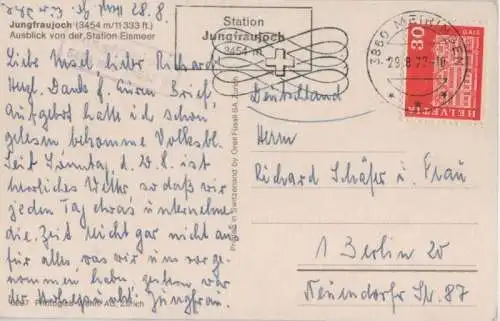 28.8.
Jungfraujoch (3454 m/11 333 ft.)
Ausblick von der Station Eismeer
Liebe Insel lieber Richard
Dank f. Euren Brief,
Aufgebot hatte ich schon
gelesen bekomme Volksbl.
Seit Sonntag d. 20. 8. ist
herrliches Wetter so daß wir
jeden Tag etwas unternehmen
die Zeit reicht gar nicht an
für alles was wir uns vorge-
nommen haben gestern war
der Jungfrau.
Photoglob-Wehrli AG, Zürich
Printed in Switzerland by Orell Füssli SA, Zürich
Station
Jungfraujoch
3454 m
3860 MEIRINGEN
29.8.72-10
30
HELVETIA
Deutschland
Herrn
Richard Schäfer u. Frau
1 Berlin 20
Neuendorfer Str. 87